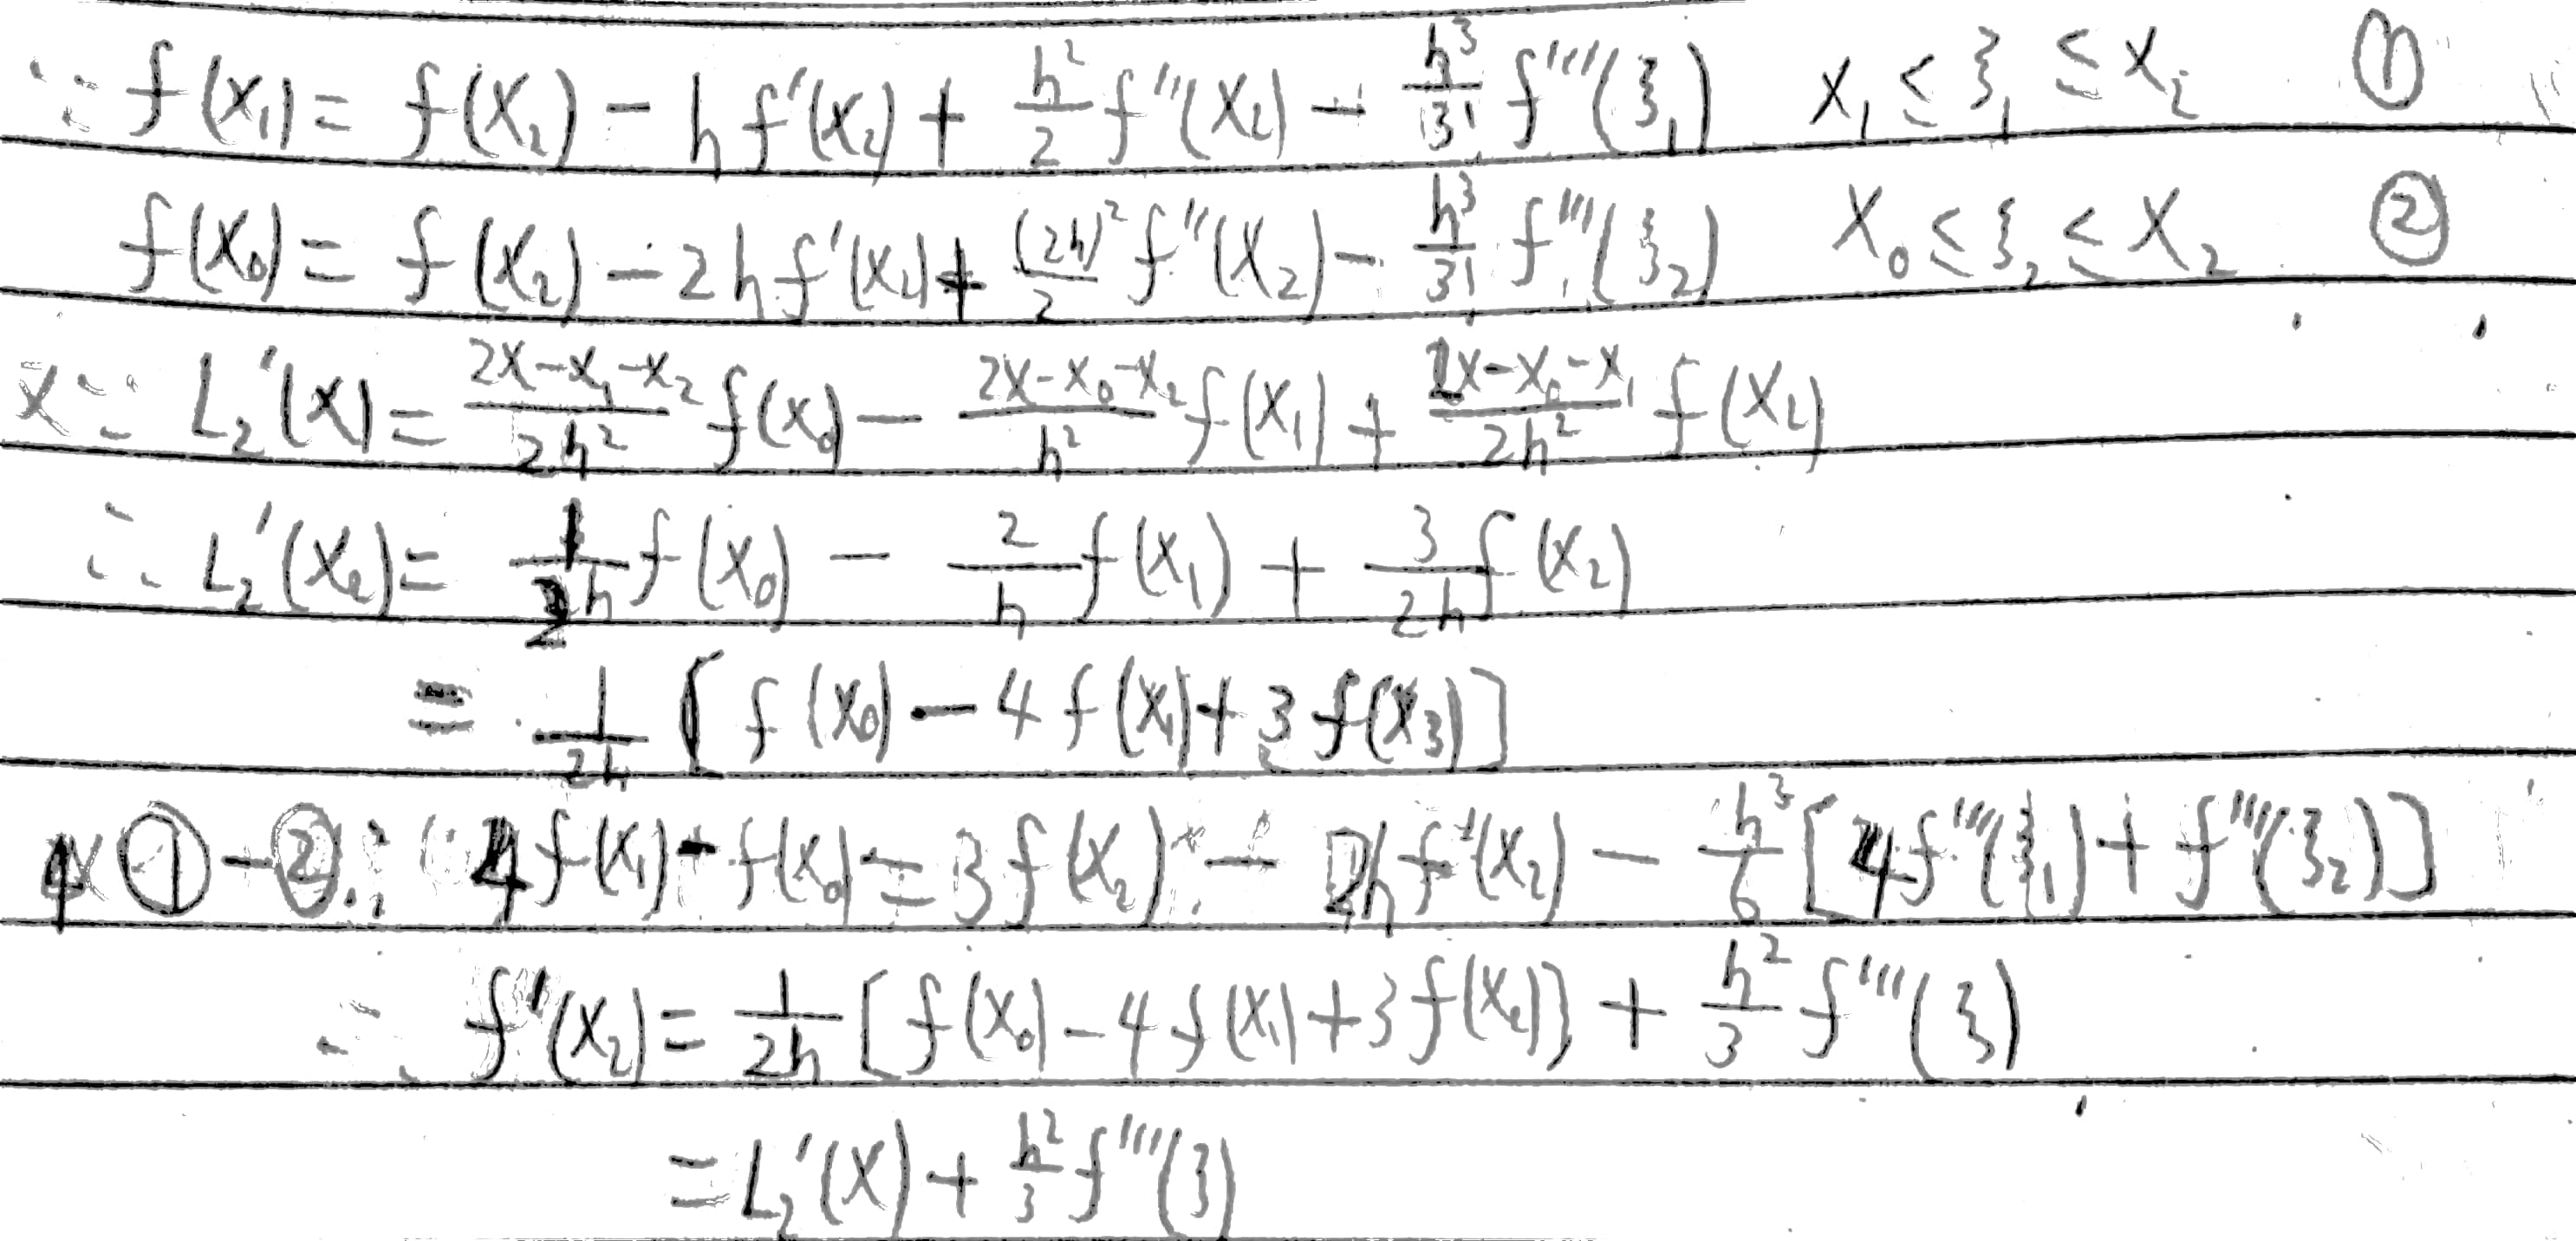 ∵ f(x₁) = f(x₂) - hf'(x₂) + \frac{h²}{2} f''(x₂) - \frac{h³}{3!} f'''(ξ₁) x₁ ≤ ξ₁ ≤ x₂ ①
f(x₀) = f(x₂) - 2hf'(x₂) + \frac{(2h)²}{2} f''(x₂) - \frac{h³}{3!} f'''(ξ₂) x₀ ≤ ξ₂ ≤ x₂ ②
又∵ L₂'(x) = \frac{2x-x₁-x₂}{2h²} f(x₀) - \frac{2x-x₀-x₂}{h²} f(x₁) + \frac{2x-x₀-x₁}{2h²} f(x₂)
∴ L₂'(x₂) = \frac{1}{2h} f(x₀) - \frac{2}{h} f(x₁) + \frac{3}{2h} f(x₂)
= \frac{1}{2h} [f(x₀) - 4f(x₁) + 3f(x₃)]
4×①-②: 4f(x₁) - f(x₀) = 3f(x₂) - 2hf'(x₂) - \frac{h³}{6} [4f'''(ξ₁) + f'''(ξ₂)]
∴ f'(x₂) = \frac{1}{2h} [f(x₀) - 4f(x₁) + 3f(x₂)] + \frac{h²}{3} f'''(ξ)
= L₂'(x) + \frac{h²}{3} f'''(ξ)